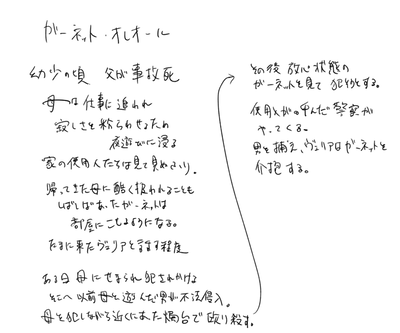 ガーネット・オレオール
幼少の頃 父が事故死
母は仕事に追われ
寂しさを紛らわせるため
夜遊びに浸る
家の使用人たちは見て見ぬふり。
帰ってきた母に酷く扱われることも
しばしばあったがガーネットは
部屋にこもるようになる。
たまに来たヴェリアと話す程度
ある日 母にせまられ犯されかける
そこへ以前母と遊んだ男が不法侵入。
母を犯しながら近くにあった燭台で殴り殺す。
その後 放心状態の
ガーネットを見て犯そうとする。
使用人が呼んだ警察が
やってくる。
男を捕え、ヴェリアはガーネットを
介抱する。